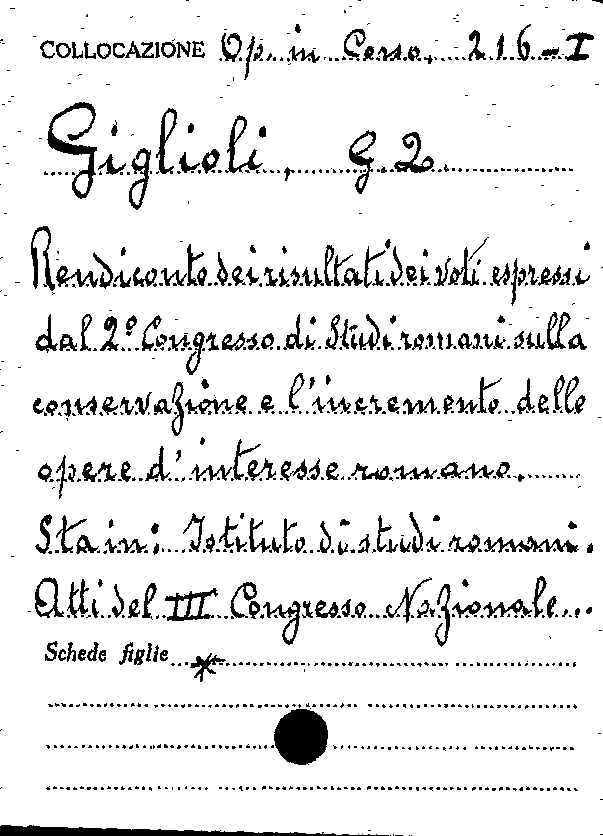 COLLOCAZIONE Op. in Corso, 216-I
Giglioli, G. Q.
Rendiconto dei risultati dei voti espressi
dal 2° Congresso di Studi romani sulla
conservazione e l'incremento delle
opere d'interesse romano.
Sta in: Istituto di studi romani.
Atti del III Congresso Nazionale...
Schede figlie *